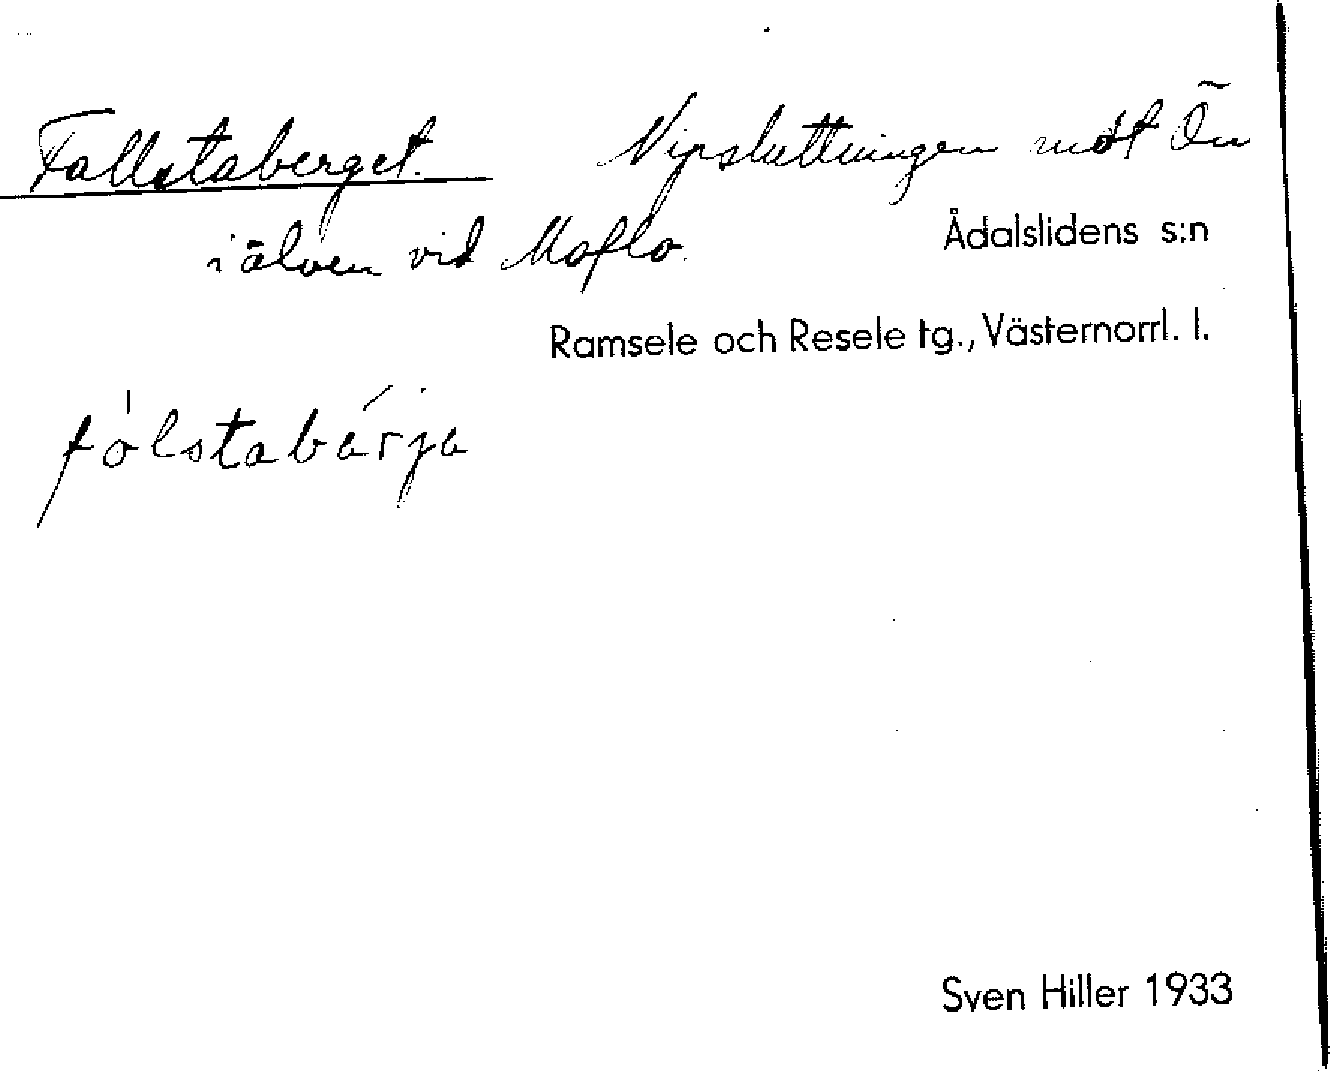 Fallstaberget. Nipsluttningen mot Ön
i älven vid Moflo.
Ådalslidens s:n
Ramsele och Resele tg., Västernorrl. l.
fólstabárja
Sven Hiller 1933